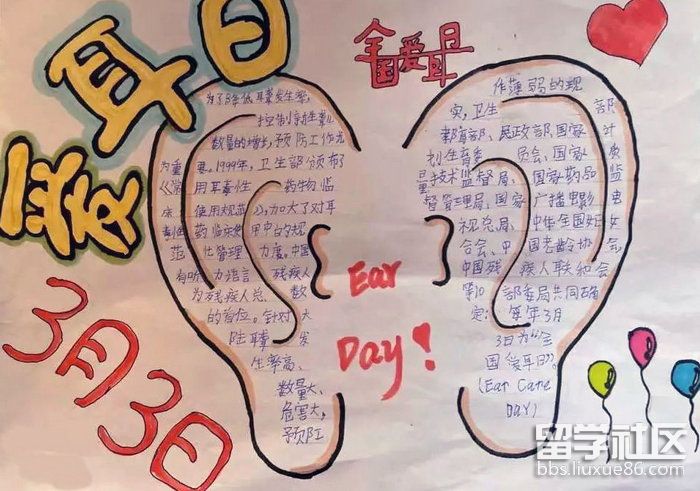 爱耳日
全国爱耳日
3月3日
Ear
Day!
为了降低耳聋发生率,
控制新生聋儿
数量的增长,预防工作尤
为重要。1999年,卫生部颁布
用耳毒性药物临
床使用规范》,加大了对耳
毒性药临床使用中的规
范性管理力度。中国
有听力语言残疾人
为残疾人总数
的首位。针对
耳聋发
生率高、
数量大、
危害大,
预防工
作薄弱的现
实,卫生部
教育部、民政部、国家计
划生育委员会、国家质
量技术监督局、国家药品监
督管理局、国家广播电影电
视总局、中华全国妇女
合会、中国老龄协会
中国残疾人联和会
等10部委局共同确
定:每年3月
3日为“全
国爱耳日”。
(Ear Care
DAY)
留学社区
bbs.liuxue86.com